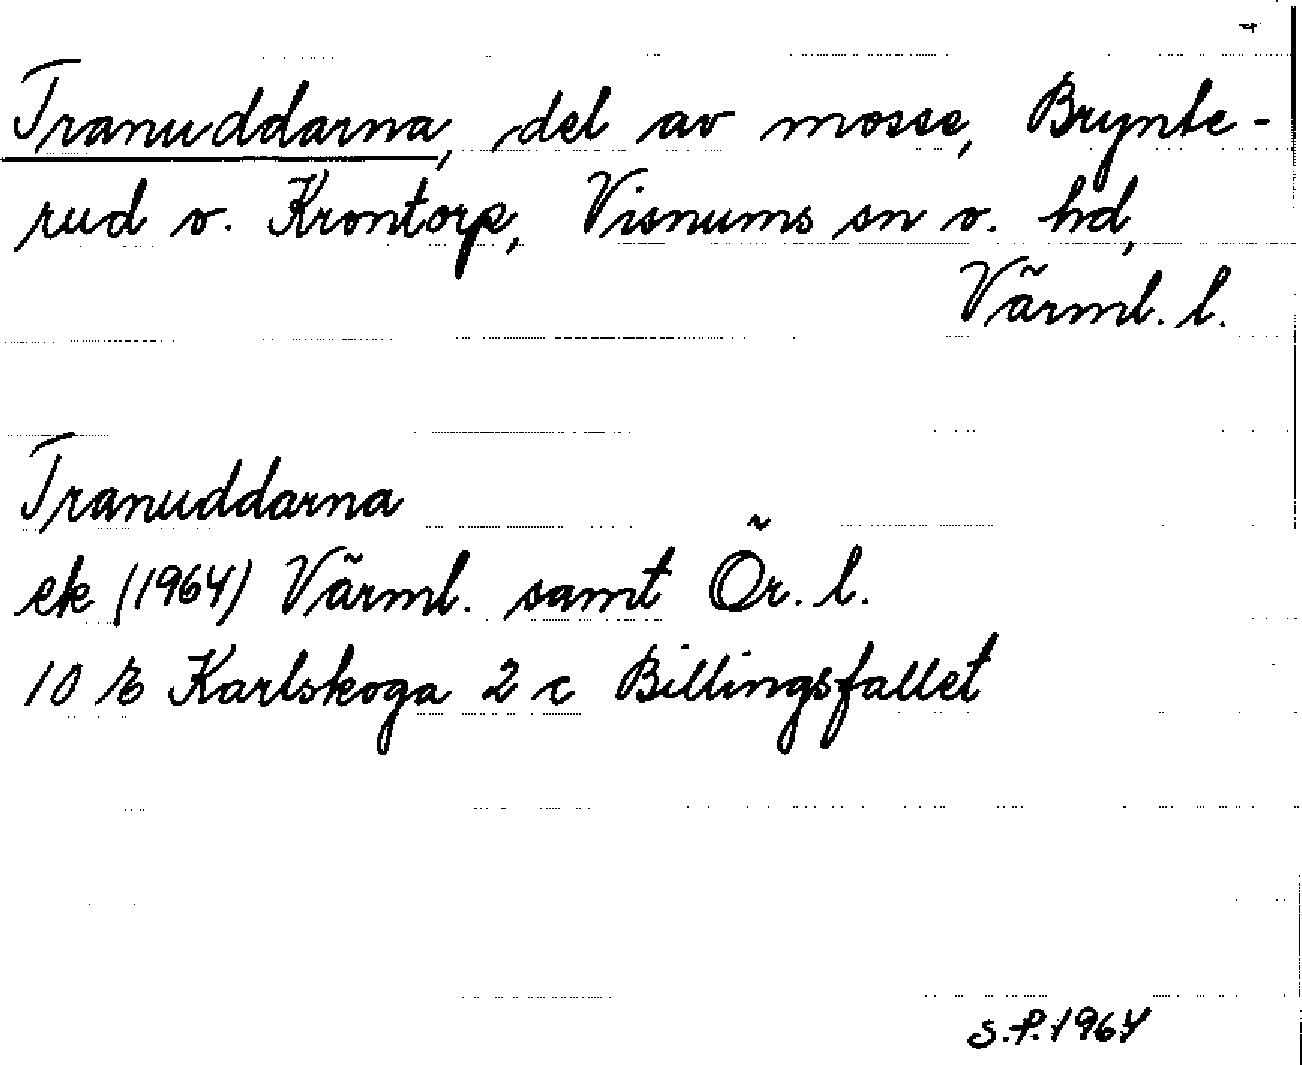 Tranuddarna, del av mosse, Brynte-
rud o. Krontorp, Visnums sn o. hd,
Värml. l.
Tranuddarna
ek (1964) Värml. samt Ör. l.
10 E Karlskoga 2 c Billingsfallet
S.P. 1964